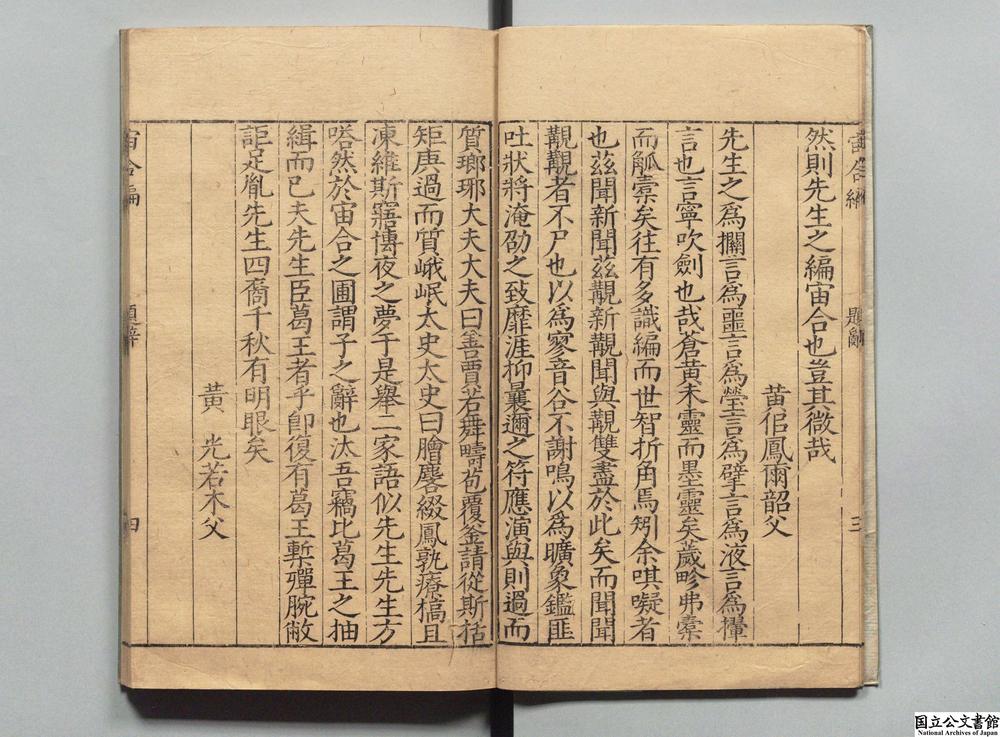 宙合編
題辭
三
然則先生之編宙合也豈其微哉
黃佀鳳爾韶父
先生之爲攔言爲噩言爲瑩言爲躄言爲液言爲攆
言也言寧吹劍也哉倉黃未靈而墨靈矣薉畛弗橐
而觚橐矣往有多識編而世智折角焉矧余唭噬者
也茲聞新聞茲覩新覩聞與覩雙盡於此矣而聞聞
覩覩者不尸也以爲寥音谷不謝鳴以爲曠象鑑匪
吐狀將淹劭之致靡涯抑曩邇之符應演與則過而
質瑯琊大夫大夫曰善賈若舞疇苞覆釜請從斯括
矩庚過而質峨岷太史太史曰膾麐綴鳳孰療槁且
凍維斯寤博夜之夢于是舉二家語似先生先生方
嗒然於宙合之圃謂子之辭也汰吾竊比葛王之抽
緝而已夫先生臣葛王者乎卽復有葛王蹔殫腕敝
詎足胤先生四裔千秋有明眼矣
黃光若木父
宙合編
題辭
四
国立公文書館
National Archives of Japan